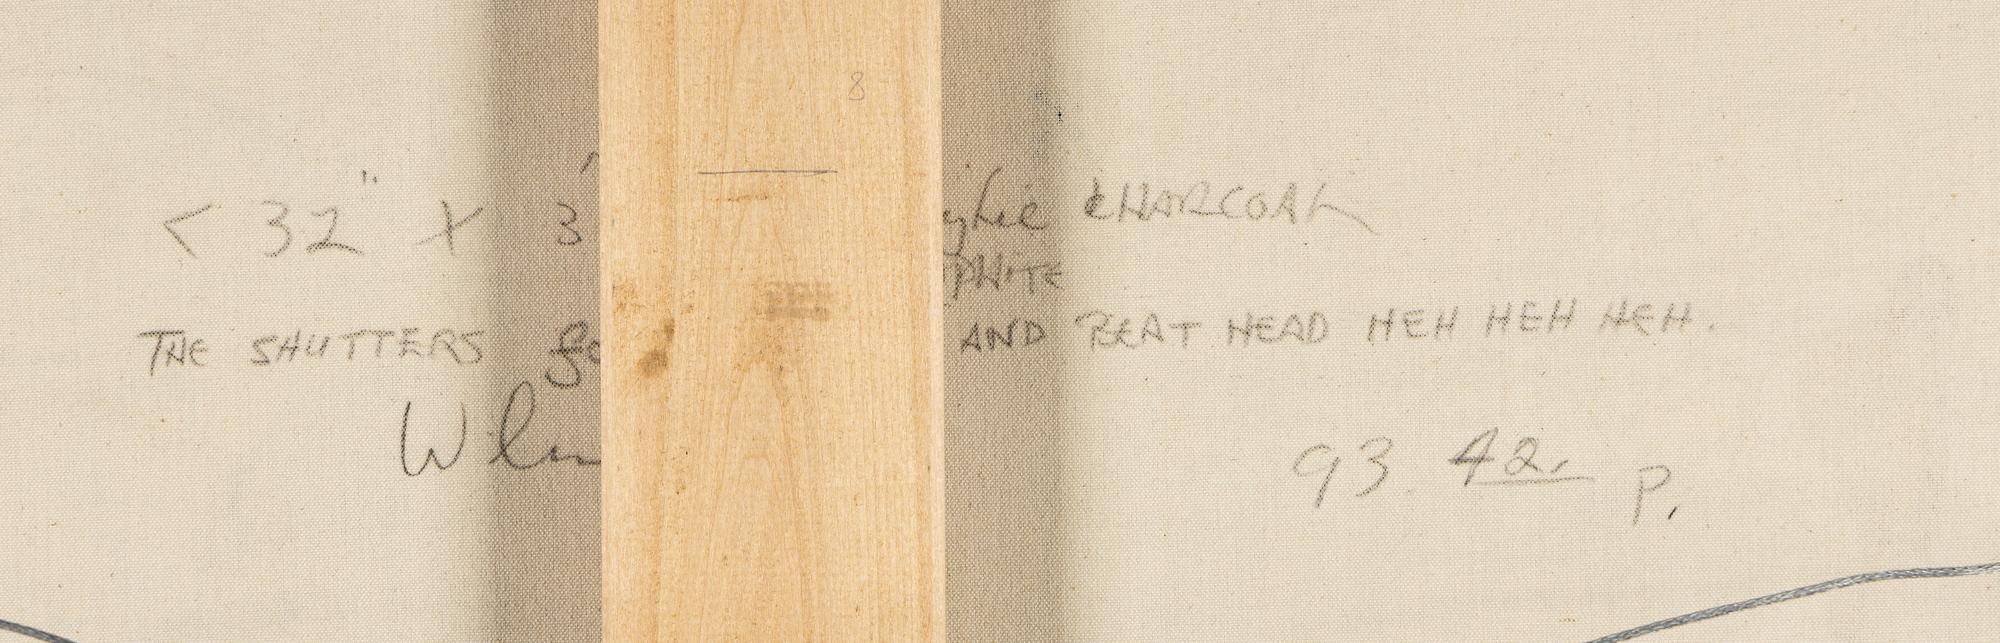 8
< 32" X 3 CHARCOAL
PHITE
THE SHUTTERS AND BEAT HEAD HEH HEH HEH.
93 42. P.